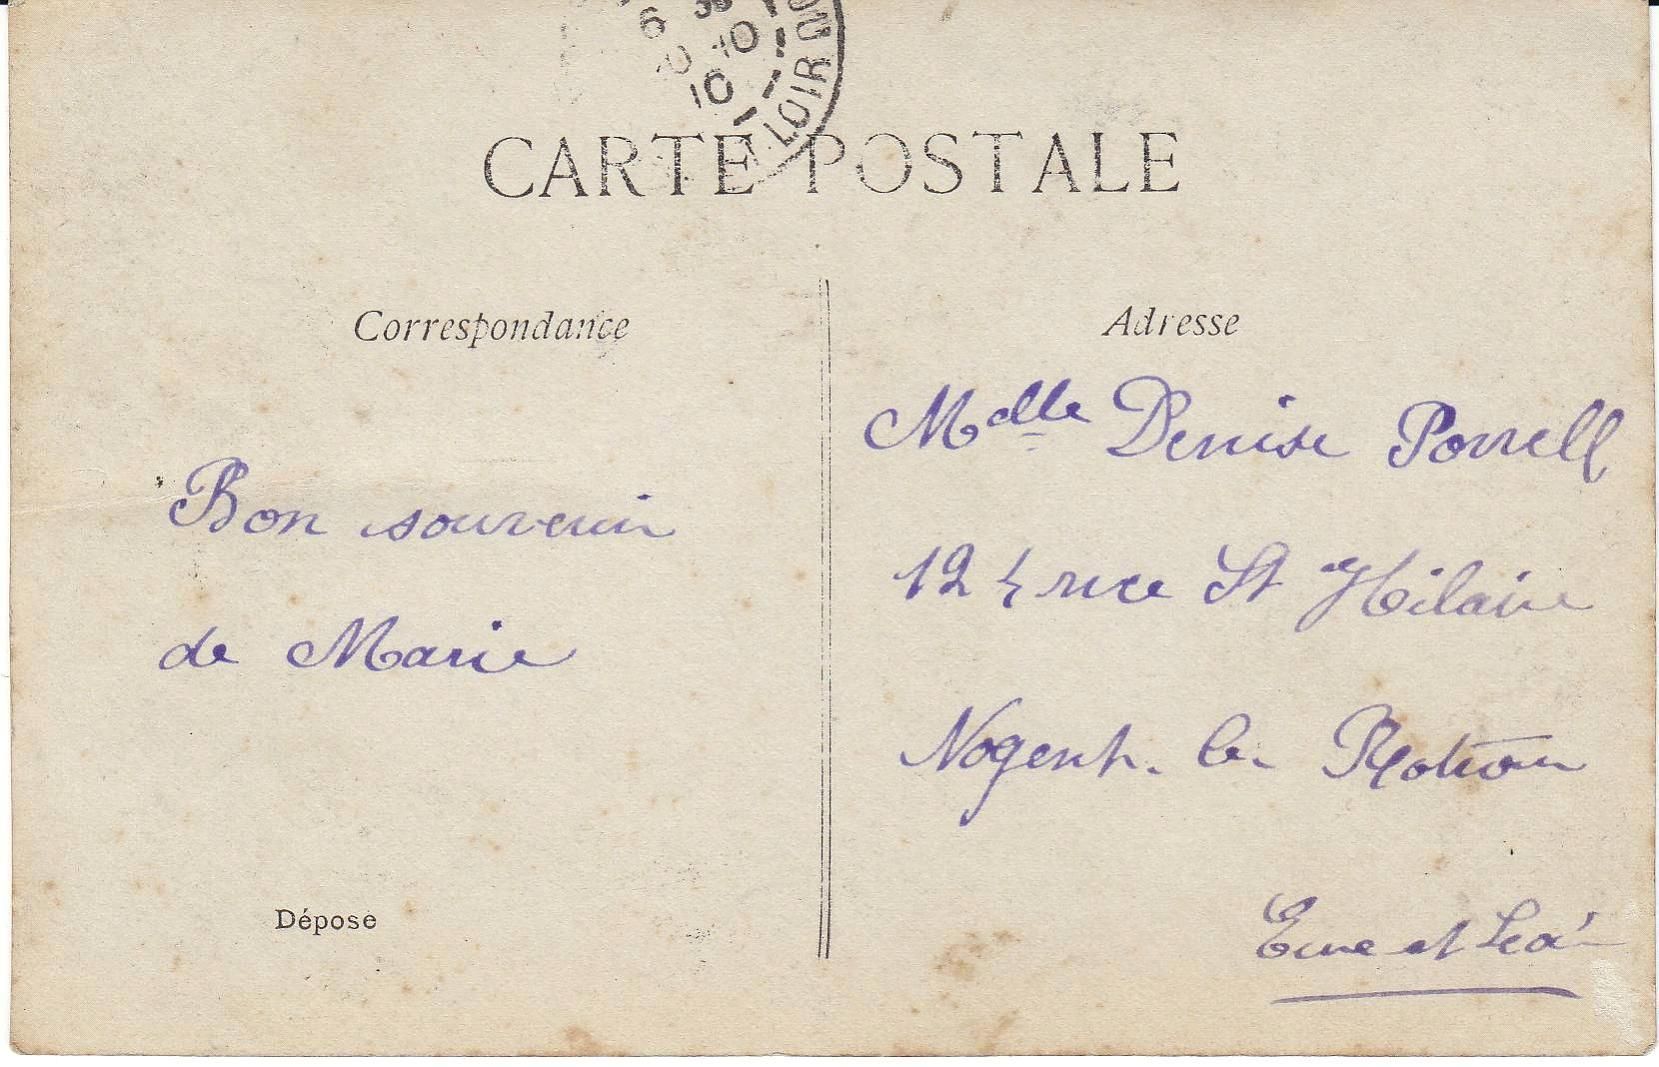 6 30
10 -10
LOIR
CARTE POSTALE
Correspondance
Adresse
Bon souvenir
de Marie
Melle Denise
124 rue St Hilaire
Nogent. le. Rotrou
Eure et Loir
Dépose